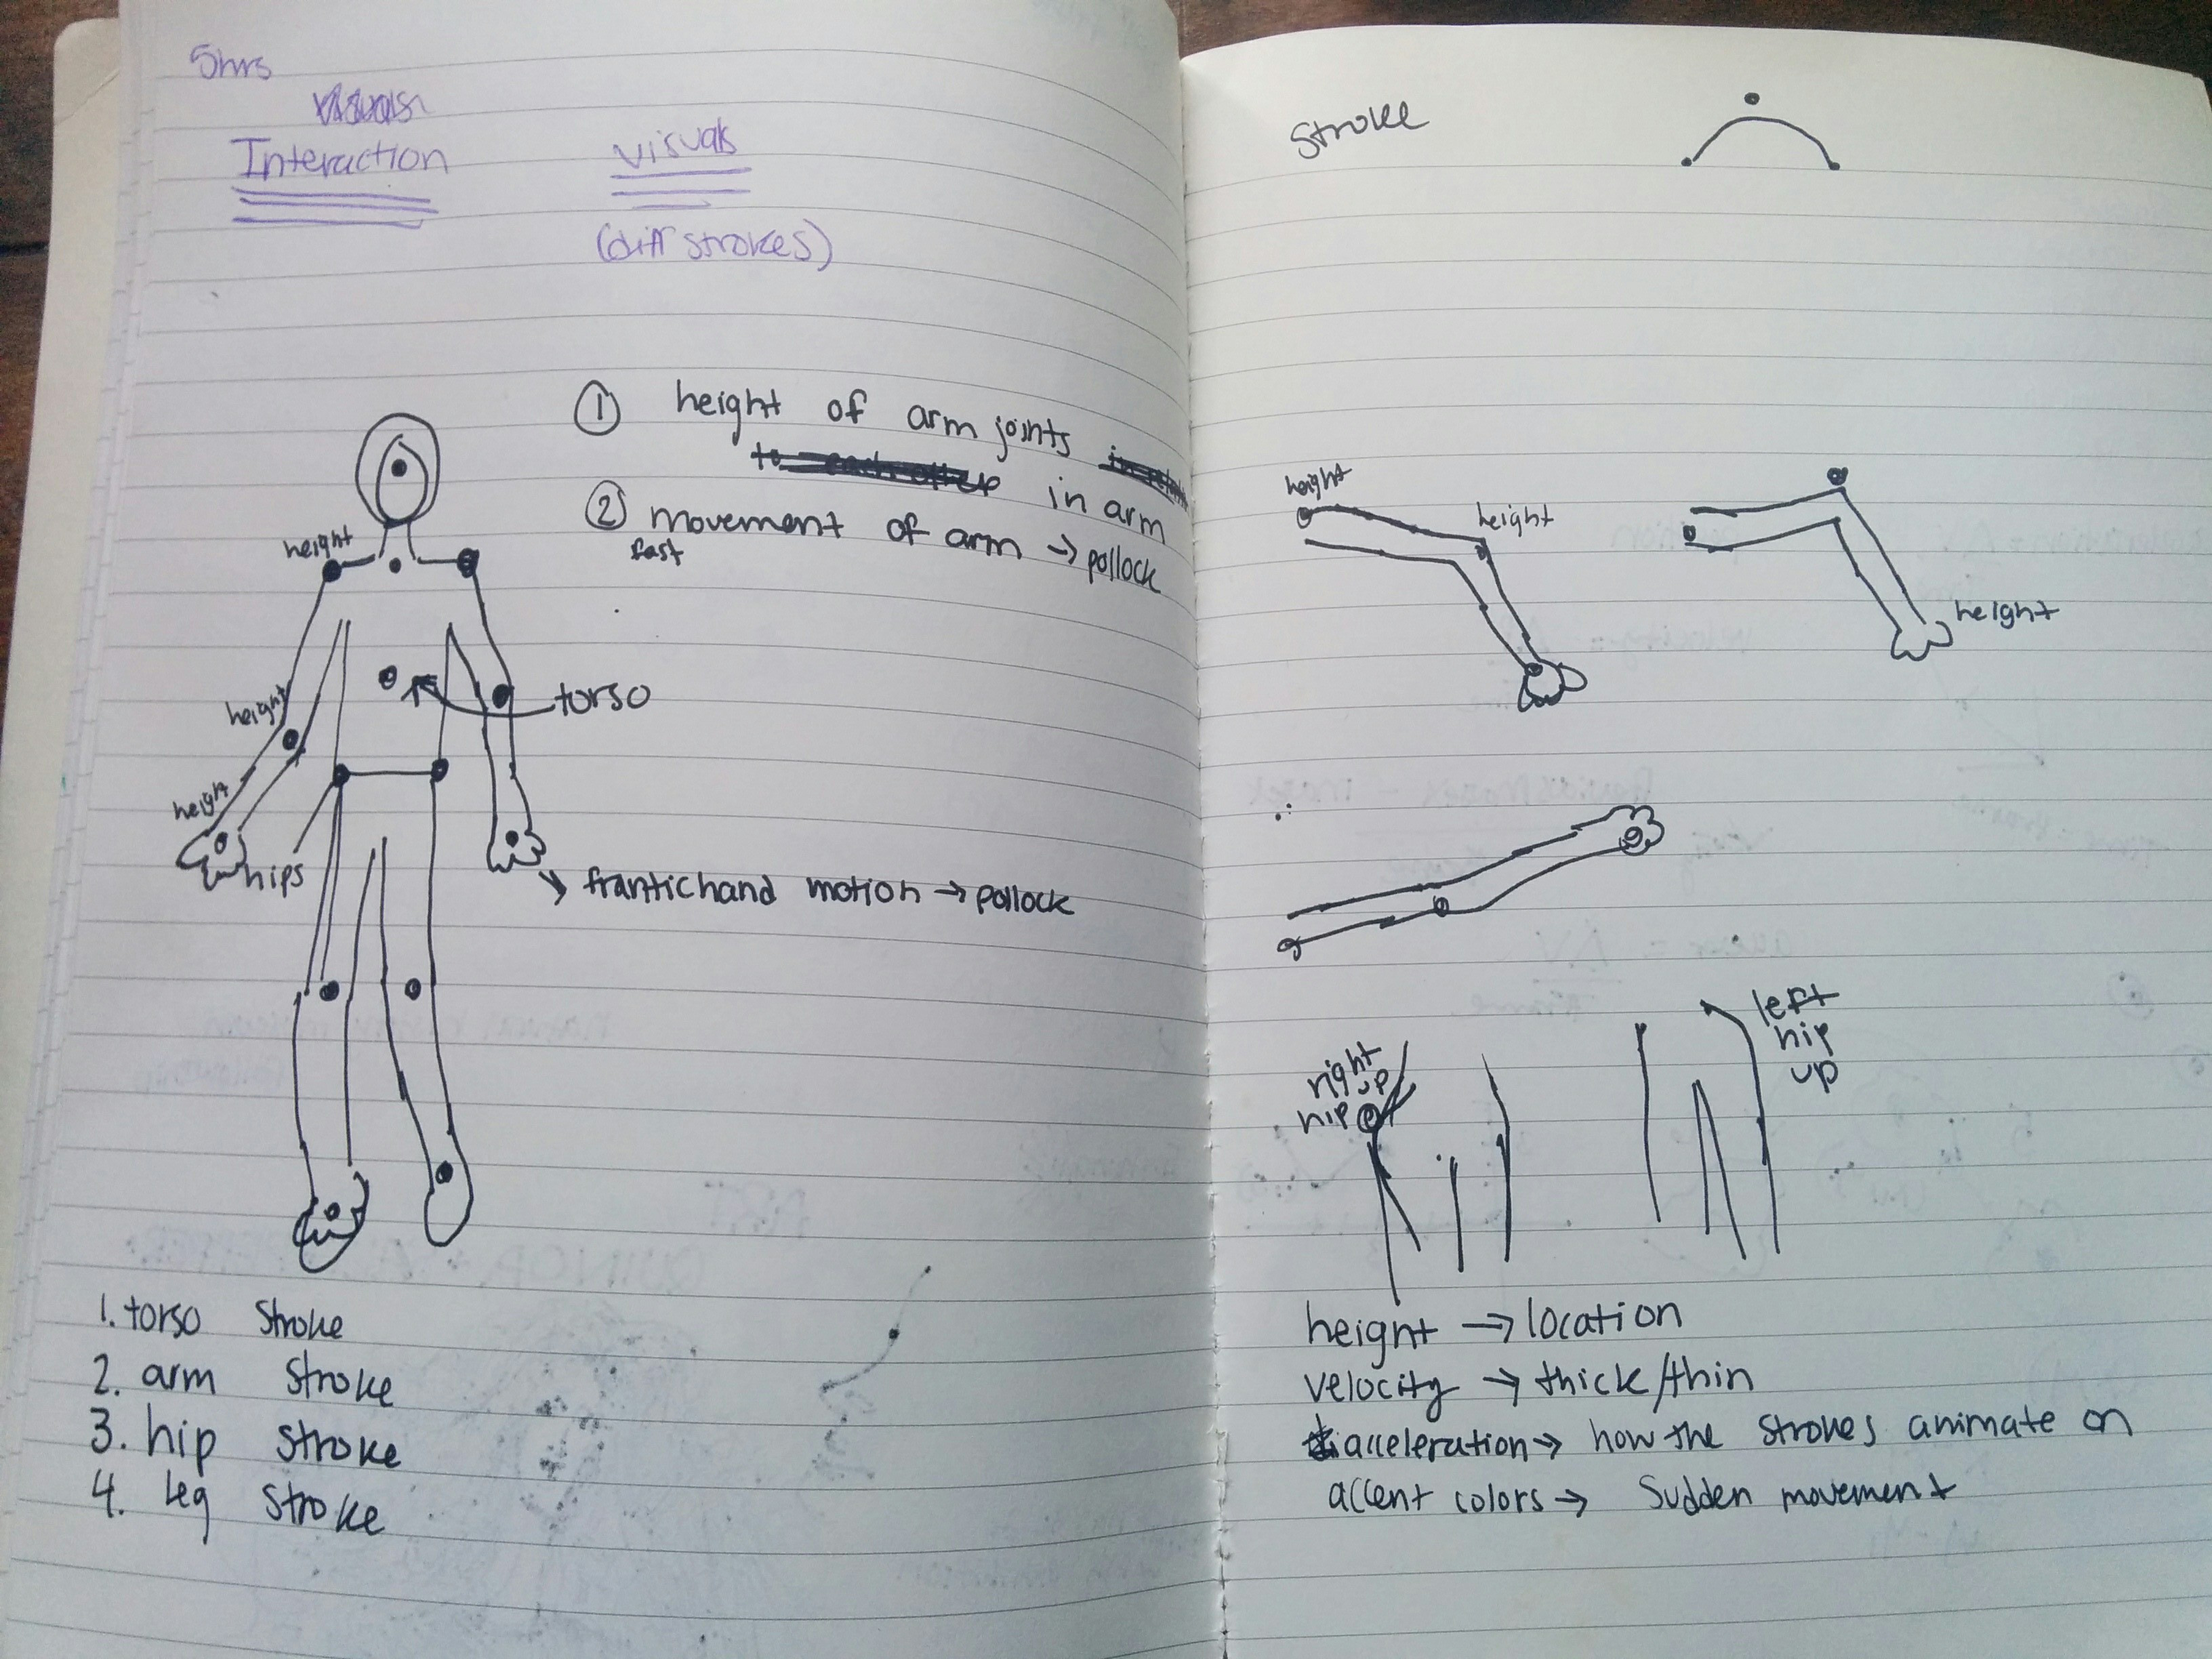 5hrs
visuals
Interaction
visuals
(diff strokes)
① height of arm joints
to each other in arm
② movement of arm → pollock
fast
height
height
height
torso
hips
frantic hand motion → pollock
1. torso stroke
2. arm stroke
3. hip stroke
4. leg stroke
Stroke
height
height
height
right
up
hip
left
hip
up
height → location
velocity → thick/thin
acceleration → how the strokes animate on
accent colors → Sudden movement